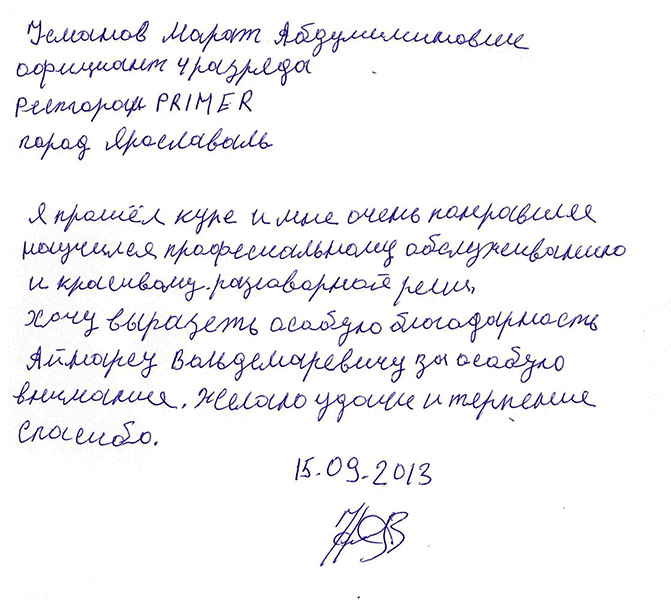 Усманов Марат Абдулмиминович
официант 4 разряда
Ресторан PRIMER
город Ярославаль
Я прошёл курс и мне очень понравился
научился професиальному обслуживанию
и красивому. разговорной речи,
Хочу выразеть особую благодарность
Аймарец Вальдемаревичу за особую
внимания. Желаю удачи и терпение
Спасибо.
15.09.2013